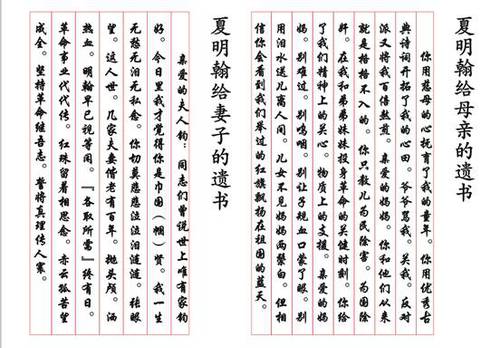 夏明翰给母亲的遗书
你用慈母的心抚育了我的童年。你用优秀古
典诗词开拓了我的心田。爷爷骂我。关我。反对
派又将我百倍熬煎。亲爱的妈妈。你和他们从来
就是格格不入的。你只教儿为民除害。为国除
奸。在我和弟弟妹妹投身革命的关健时刻。你给
了我们精神上的关心。物质上的支援。亲爱的妈
妈。别难过。别呜咽。别让子规血口蒙了眼。别
用泪水送儿离人间。儿女不见妈妈两鬓白。但相
信你会看到我们举过的红旗飘扬在祖国的蓝天。
夏明翰给妻子的遗书
亲爱的夫人钧：同志们曾说世上唯有家钧
好。今日里我才觉得你是巾国（帼）贤。我一生
无愁无泪无私念。你切莫悲悲泣泣泪涟涟。张眼
望。这人世。几家夫妻偕老有百年。抛头颅。洒
热血。明翰早已视等闲。“各取所需”终有日。
革命事业代代传。红珠留着相思念。赤云孤苦望
成全。坚持革命继吾志。誓将真理传人寰。